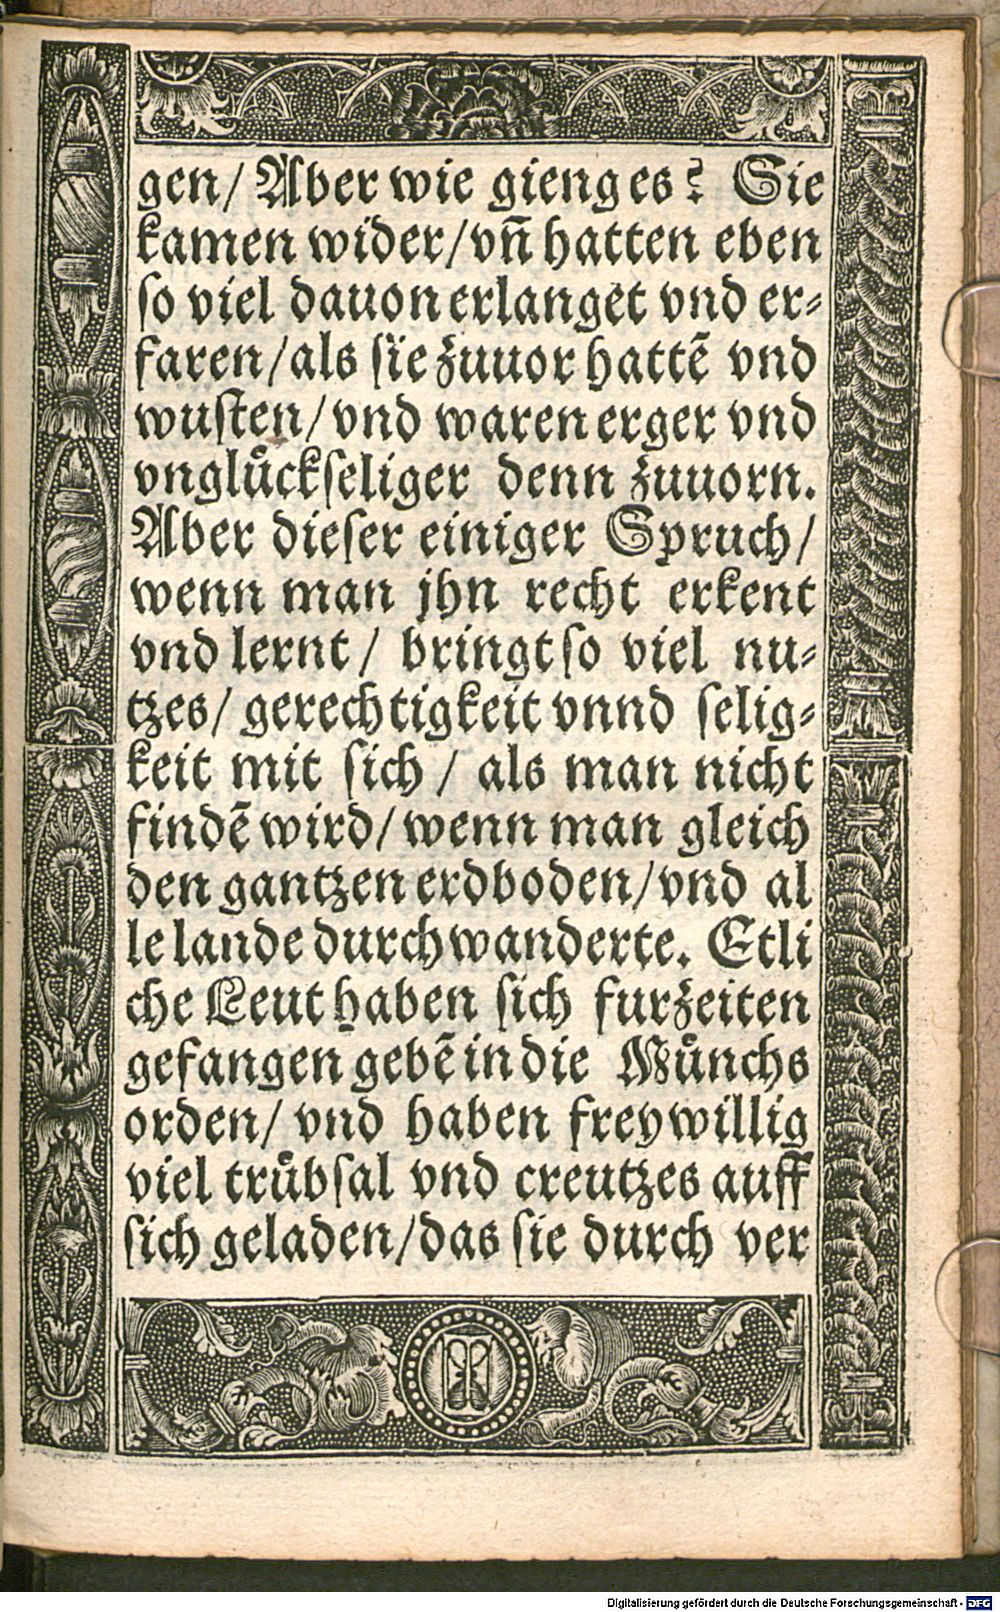 gen/ Aber wie gieng es? Sie
kamen wider/ vn̄ hatten eben
so viel dauon erlanget vnd er-
faren/ als sie zuuor hattē vnd
wusten/ vnd waren erger vnd
vnglůckseliger denn zuuorn.
Aber dieser einiger Spruch/
wenn man jhn recht erkent
vnd lernt/ bringt so viel nu-
tzes/ gerechtigkeit vnnd selig-
keit mit sich/ als man nicht
findē wird/ wenn man gleich
den gantzen erdboden/ vnd al
le lande durchwanderte. Etli
che Leut haben sich furzeiten
gefangen gebē in die Můnchs
orden/ vnd haben freywillig
viel trůbsal vnd creutzes auff
sich geladen/ das sie durch ver
Digitalisierung gefördert durch die Deutsche Forschungsgemeinschaft - DFG